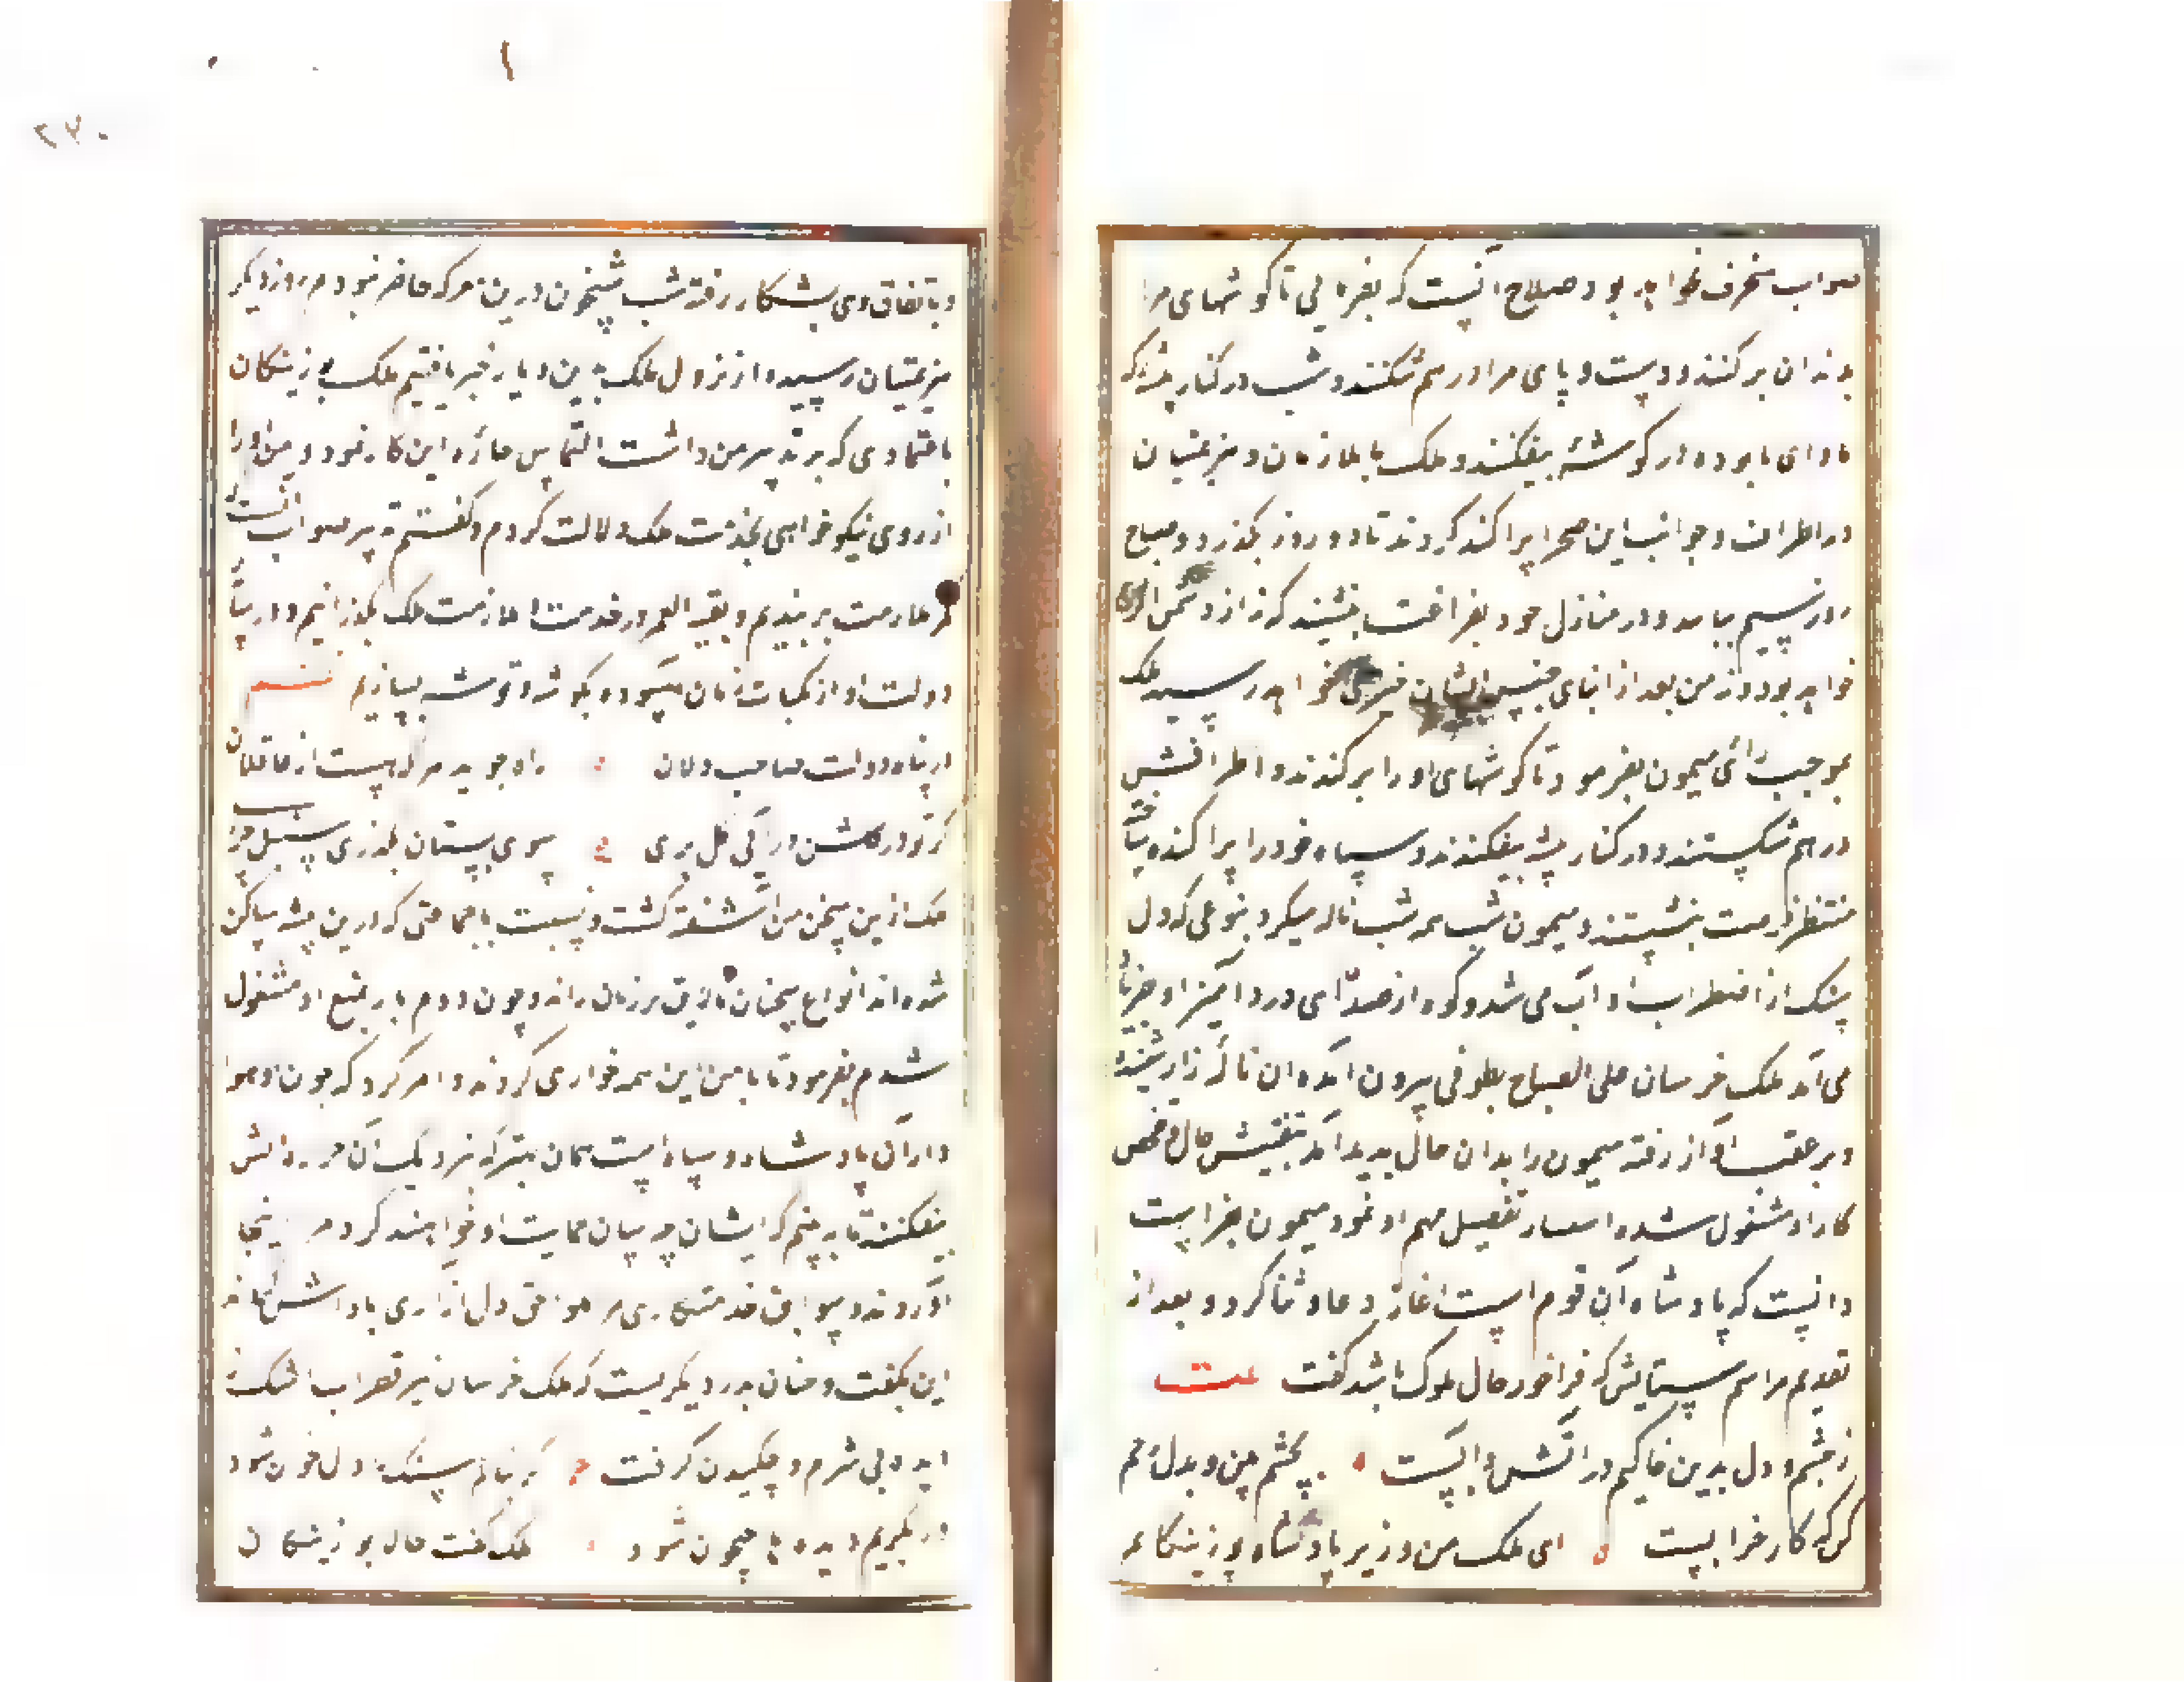 صواب منحرف نخواهد بود صلاح آنست که بفرمایی تا گوشهای مرا
بدندان برکنند و دست و پای مرا درهم شکنند و شب در کنار بیشه که
ماوای ما بوده در گوشهٔ بیفکنند و ملک با ملازمان و هزیمتیان
در اطراف و جوانب این صحرا پراکنده گردند تا دو روز بگذرد و صباح
روز سیم بیایند و در منازل خود بفراغت بنشینند که نه از دشمن اثری
خواهد بود و نه من بعد از ابنای جنس ایشان ضرری خواهد رسید ملک
بموجب رأی میمون بفرمود تا گوشهای او را برکندند و اطرافش
درهم شکستند و در کنار بیشه بیفکندند و سپاه خود را پراکنده ساخته
منتظر فرصت بنشستند و میمون شب همه شب ناله میکرد بنوعی که دل
سنگ از اضطراب او آب می شد و کوه از صدای درد آمیز او بفریاد
می آمد ملک خرسان علی الصباح بطوفی بیرون آمده آن نالهٔ زار شنید
و بر عقب آواز رفته میمون را بدان حال بدید آمد بتفتیش حال و تفحص
کار او مشغول شده استفسار تفصیل مهم او نمود میمون بفراست
دانست که پادشاه آن قوم است آغاز دعا و ثنا کرد و بعد از
تقدیم مراسم ستایش که فراخور حال ملوک باشد گفت بیت
ز چشم و دل بدین خاکیم در آتش و آبست بچشم من و بدل رحم
کن که کار خرابست ای ملک من وزیر پادشاه بوزینگانم
۲۷۰
و باتفاق وی بشکار رفته شب شبیخون درین معرکه حاضر نبودم روز دیگر
هزیمتیان رسیده از نزول ملک بدین دیار خبر یافتیم ملک بوزینگان
باعتمادی که بر تدبیر من داشت التماس چارهٔ این کار نمود و من او را
از روی نیکو خواهی بخدمت ملک دلالت کردم و گفتم تدبیر صواب آنست
کمر ملازمت بر بندیم و بقیة العمر در خدمت ملازمت ملک بگذرانیم و در پناه
دولت او از نکبات زمان آسوده بگوشه و توشه بسازیم نظم
در پناه دولت صاحب دلان راه جوید هر که هست از عاقلان
گر تو در گلشن درآیی گل بری سوی بستان بگذری سنبل چری
ملک ازین سخن من آشفته گشت و نسبت باجماعتی که درین بیشه ساکن
شده اند انواع سخنان نالایق بر زبان راند و چون دوم بار بمنع او مشغول
شدم بفرمود تا با من این همه خواری کردند و امر کرد که چون او هوا
دار آن پادشاه و سپاه است همان بهتر که نزدیک آن
بیفکنند تا ببینم که ایشان چه سان حمایت او خواهند کرد مرا اینجا
آوردند و سوابق خدمتکاری مرا بلواحق دل آزاری پاداش
این بگفت و چنان بدرد بگریست که ملک خرسان نیز قطرات اشک
دیده بی شرم و چکیدن گرفت گر بنالم سنگ را دل خون شود
ور بگریم دیده ها جیحون شود ملک گفت حال بوزینگان